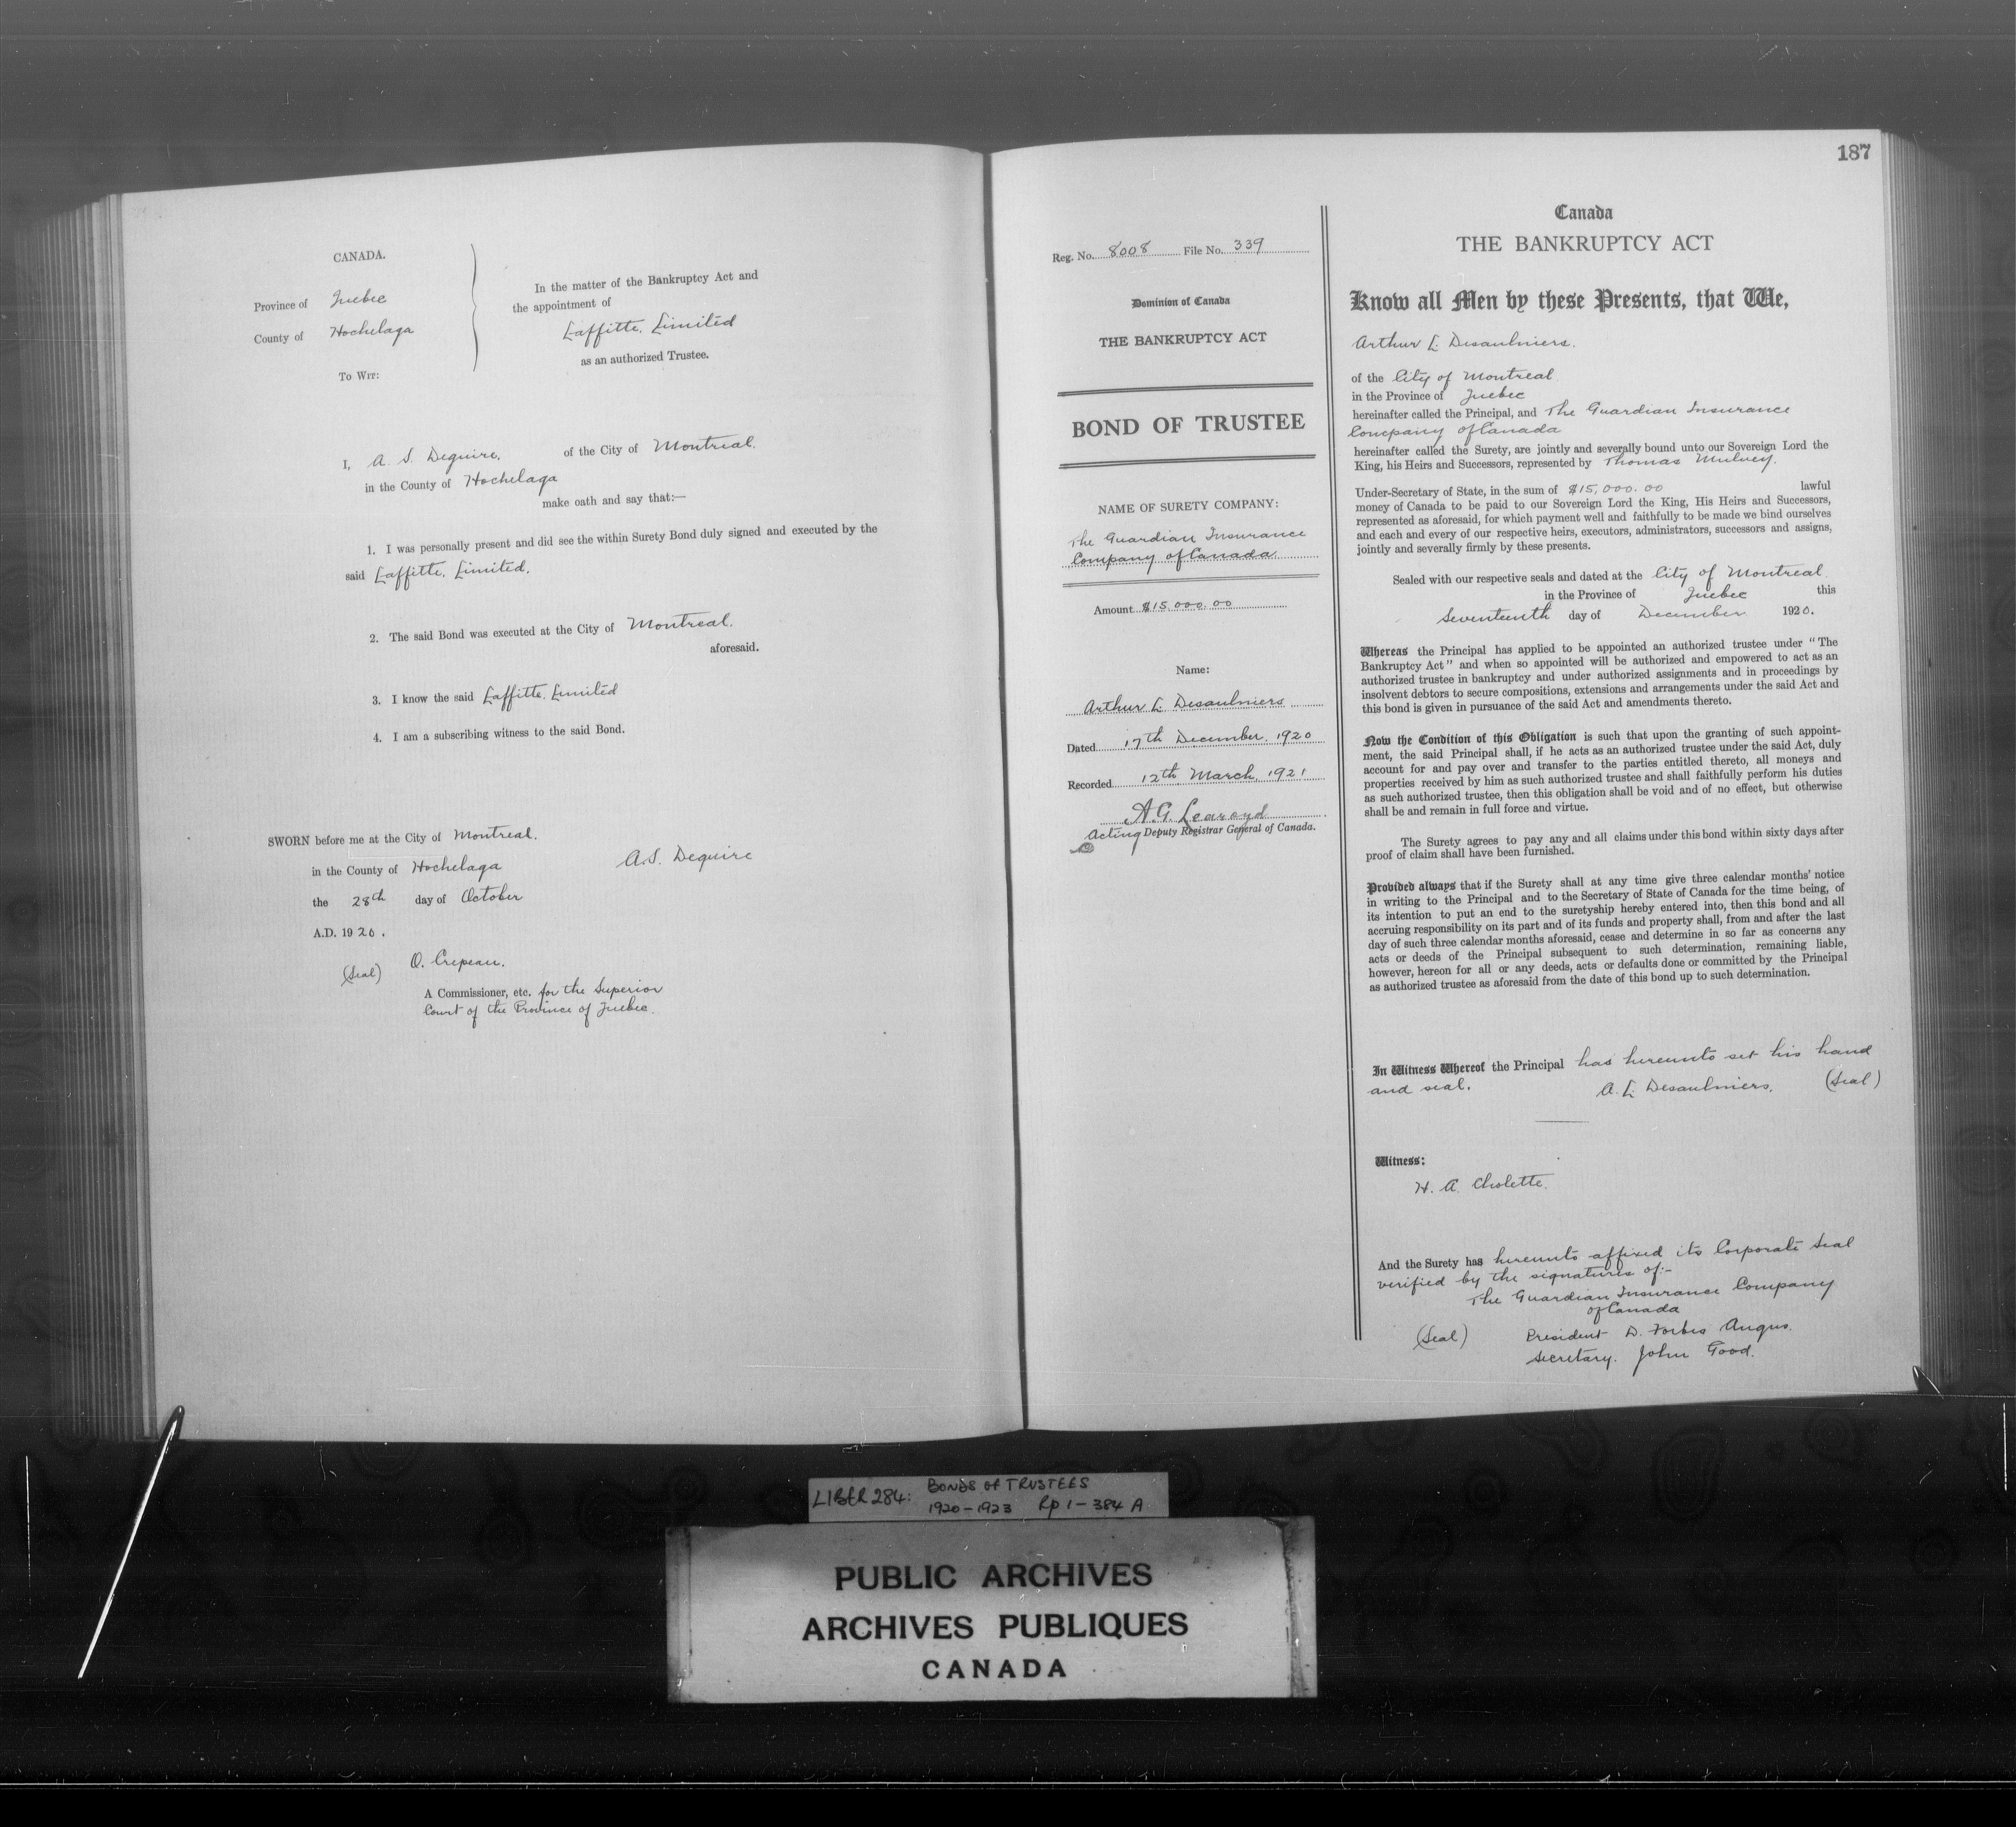 CANADA.
Province of Quebec
County of Hochelaga
To Wit:
In the matter of the Bankruptcy Act and
the appointment of
Laffitte, Limited
as an authorized Trustee.
I, A. S. Deguire, of the City of Montreal.
in the County of Hochelaga
make oath and say that:—
1. I was personally present and did see the within Surety Bond duly signed and executed by the
said Laffitte, Limited,
2. The said Bond was executed at the City of Montreal.
aforesaid.
3. I know the said Laffitte, Limited
4. I am a subscribing witness to the said Bond.
SWORN before me at the City of Montreal.
in the County of Hochelaga
the 28th day of October
A.D. 1920.
A.S. Deguire
(Seal) O. Crepeau.
A Commissioner, etc. for the Superior
Court of the Province of Quebec.
187
Reg. No. 8008 File No. 339
Dominion of Canada
THE BANKRUPTCY ACT
BOND OF TRUSTEE
NAME OF SURETY COMPANY:
The Guardian Insurance
Company of Canada
Amount $15,000.00
Name:
Arthur L. Desaulniers
Dated 17th December, 1920
Recorded 12th March, 1921
A.G. Learoyd
Acting Deputy Registrar General of Canada.
Canada
THE BANKRUPTCY ACT
Know all Men by these Presents, that We,
Arthur L. Desaulniers.
of the City of Montreal
in the Province of Quebec
hereinafter called the Principal, and The Guardian Insurance
Company of Canada
hereinafter called the Surety, are jointly and severally bound unto our Sovereign Lord the
King, his Heirs and Successors, represented by Thomas Mulvey.
Under-Secretary of State, in the sum of $15,000.00 lawful
money of Canada to be paid to our Sovereign Lord the King, His Heirs and Successors,
represented as aforesaid, for which payment well and faithfully to be made we bind ourselves
and each and every of our respective heirs, executors, administrators, successors and assigns,
jointly and severally firmly by these presents.
Sealed with our respective seals and dated at the City of Montreal.
in the Province of Quebec this
Seventeenth day of December 1920.
Whereas the Principal has applied to be appointed an authorized trustee under "The
Bankruptcy Act" and when so appointed will be authorized and empowered to act as an
authorized trustee in bankruptcy and under authorized assignments and in proceedings by
insolvent debtors to secure compositions, extensions and arrangements under the said Act and
this bond is given in pursuance of the said Act and amendments thereto.
Now the Condition of this Obligation is such that upon the granting of such appoint-
ment, the said Principal shall, if he acts as an authorized trustee under the said Act, duly
account for and pay over and transfer to the parties entitled thereto, all moneys and
properties received by him as such authorized trustee and shall faithfully perform his duties
as such authorized trustee, then this obligation shall be void and of no effect, but otherwise
shall be and remain in full force and virtue.
The Surety agrees to pay any and all claims under this bond within sixty days after
proof of claim shall have been furnished.
Provided always that if the Surety shall at any time give three calendar months' notice
in writing to the Principal and to the Secretary of State of Canada for the time being, of
its intention to put an end to the suretyship hereby entered into, then this bond and all
accruing responsibility on its part and of its funds and property shall, from and after the last
day of such three calendar months aforesaid, cease and determine in so far as concerns any
acts or deeds of the Principal subsequent to such determination, remaining liable,
however, hereon for all or any deeds, acts or defaults done or committed by the Principal
as authorized trustee as aforesaid from the date of this bond up to such determination.
In Witness Whereof the Principal has hereunto set his hand
and seal. A. L. Desaulniers. (Seal)
Witness:
H. A. Cholette.
And the Surety has hereunto affixed its Corporate Seal
verified by the signatures of:-
The Guardian Insurance Company
of Canada
(Seal) President D. Forbes Angus.
Secretary. John Good.
LIBER 284: BONDS OF TRUSTEES
1920-1923 Rp 1-384 A
PUBLIC ARCHIVES
ARCHIVES PUBLIQUES
CANADA